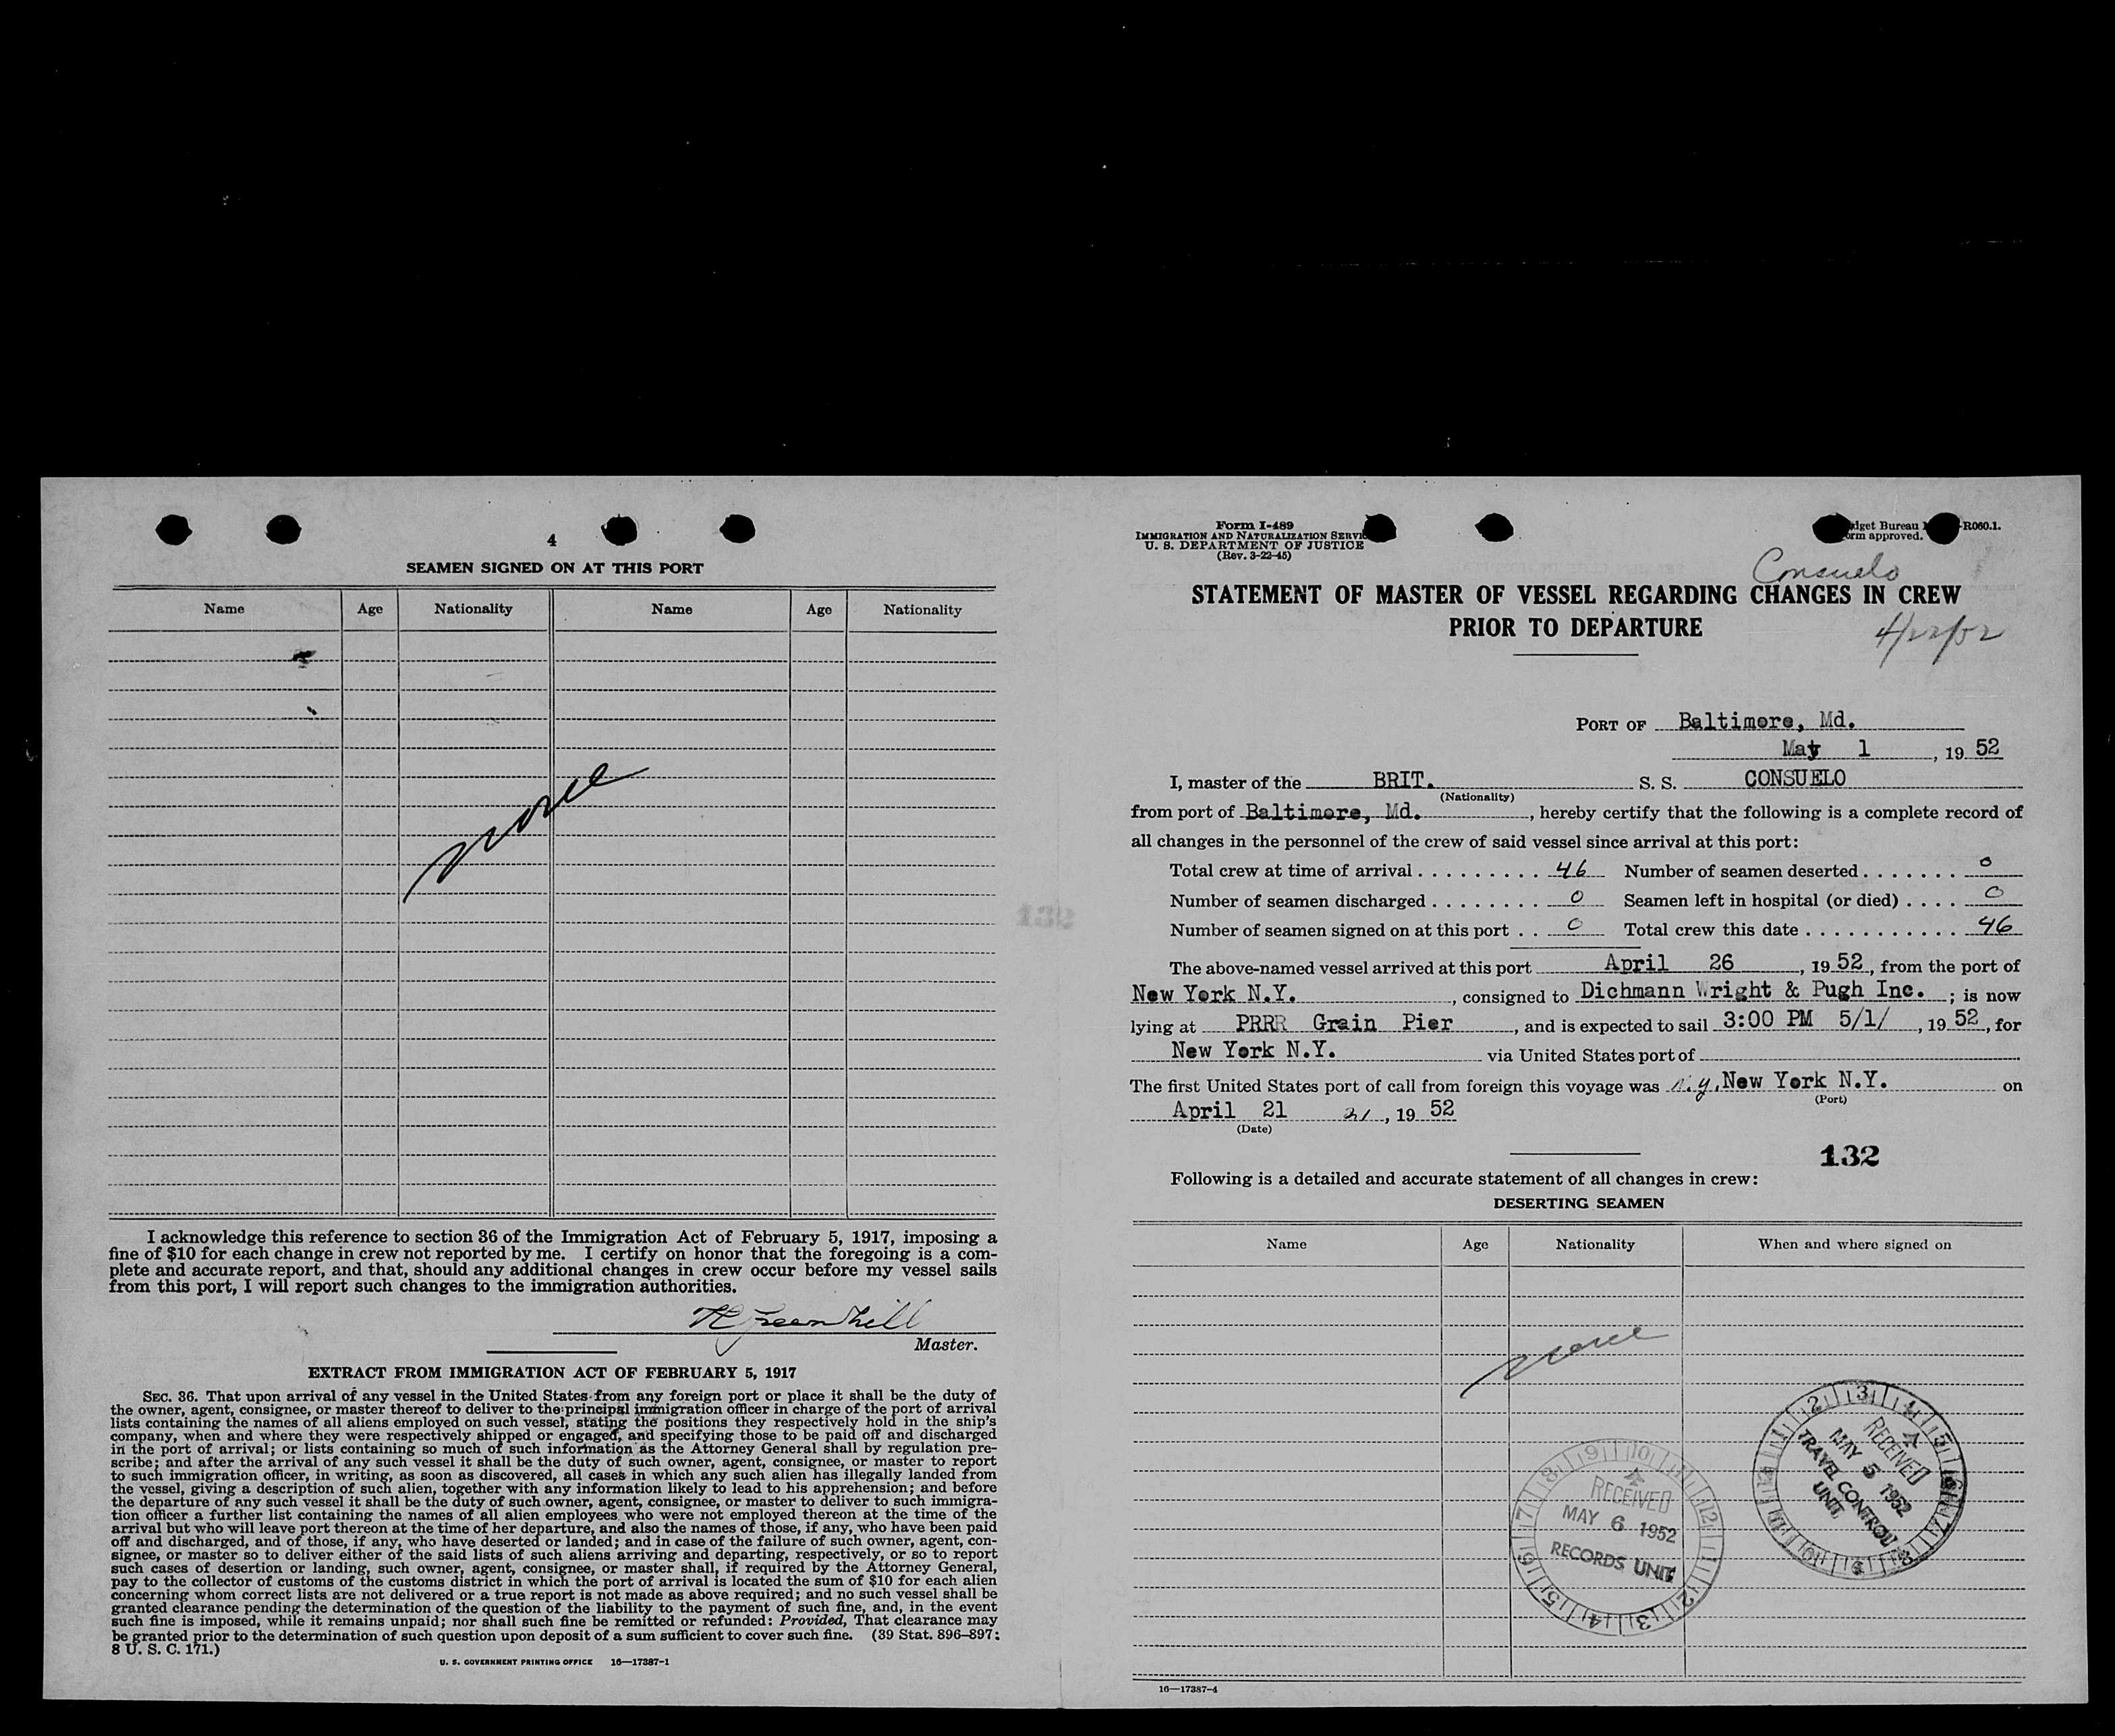 4
SEAMEN SIGNED ON AT THIS PORT
Name Age Nationality Name Age Nationality
None
I acknowledge this reference to section 36 of the Immigration Act of February 5, 1917, imposing a
fine of $10 for each change in crew not reported by me. I certify on honor that the foregoing is a com-
plete and accurate report, and that, should any additional changes in crew occur before my vessel sails
from this port, I will report such changes to the immigration authorities.
Greenhill
Master.
EXTRACT FROM IMMIGRATION ACT OF FEBRUARY 5, 1917
SEC. 36. That upon arrival of any vessel in the United States from any foreign port or place it shall be the duty of
the owner, agent, consignee, or master thereof to deliver to the principal immigration officer in charge of the port of arrival
lists containing the names of all aliens employed on such vessel, stating the positions they respectively hold in the ship's
company, when and where they were respectively shipped or engaged, and specifying those to be paid off and discharged
in the port of arrival; or lists containing so much of such information as the Attorney General shall by regulation pre-
scribe; and after the arrival of any such vessel it shall be the duty of such owner, agent, consignee, or master to report
to such immigration officer, in writing, as soon as discovered, all cases in which any such alien has illegally landed from
the vessel, giving a description of such alien, together with any information likely to lead to his apprehension; and before
the departure of any such vessel it shall be the duty of such owner, agent, consignee, or master to deliver to such immigra-
tion officer a further list containing the names of all alien employees who were not employed thereon at the time of the
arrival but who will leave port thereon at the time of her departure, and also the names of those, if any, who have been paid
off and discharged, and of those, if any, who have deserted or landed; and in case of the failure of such owner, agent, con-
signee, or master so to deliver either of the said lists of such aliens arriving and departing, respectively, or so to report
such cases of desertion or landing, such owner, agent, consignee, or master shall, if required by the Attorney General,
pay to the collector of customs of the customs district in which the port of arrival is located the sum of $10 for each alien
concerning whom correct lists are not delivered or a true report is not made as above required; and no such vessel shall be
granted clearance pending the determination of the question of the liability to the payment of such fine, and, in the event
such fine is imposed, while it remains unpaid; nor shall such fine be remitted or refunded: Provided, That clearance may
be granted prior to the determination of such question upon deposit of a sum sufficient to cover such fine. (39 Stat. 896–897;
8 U. S. C. 171.)
U. S. GOVERNMENT PRINTING OFFICE 16—17387-1
Form I-489
IMMIGRATION AND NATURALIZATION
U. S. DEPARTMENT OF JUSTICE
(Rev. 3-22-45)
Bureau R060.1.
approved.
Consuelo
STATEMENT OF MASTER OF VESSEL REGARDING CHANGES IN CREW
PRIOR TO DEPARTURE
4/22/52
PORT OF Baltimore, Md.
May 1, 19 52
I, master of the BRIT. S. S. CONSUELO
(Nationality)
from port of Baltimore, Md., hereby certify that the following is a complete record of
all changes in the personnel of the crew of said vessel since arrival at this port:
Total crew at time of arrival 46 Number of seamen deserted 0
Number of seamen discharged 0 Seamen left in hospital (or died) 0
Number of seamen signed on at this port 0 Total crew this date 46
The above-named vessel arrived at this port April 26, 19 52, from the port of
New York N.Y., consigned to Dichmann Wright & Pugh Inc.; is now
lying at PRRR Grain Pier, and is expected to sail 3:00 PM 5/1/, 19 52, for
New York N.Y. via United States port of
The first United States port of call from foreign this voyage was N.Y. New York N.Y. on
(Port)
April 21 21, 19 52
(Date)
132
Following is a detailed and accurate statement of all changes in crew:
DESERTING SEAMEN
Name Age Nationality When and where signed on
None
RECEIVED
MAY 5 1952
TRAVEL CONTROL
UNIT
RECEIVED
MAY 6 1952
RECORDS UNIT
16—17387-4